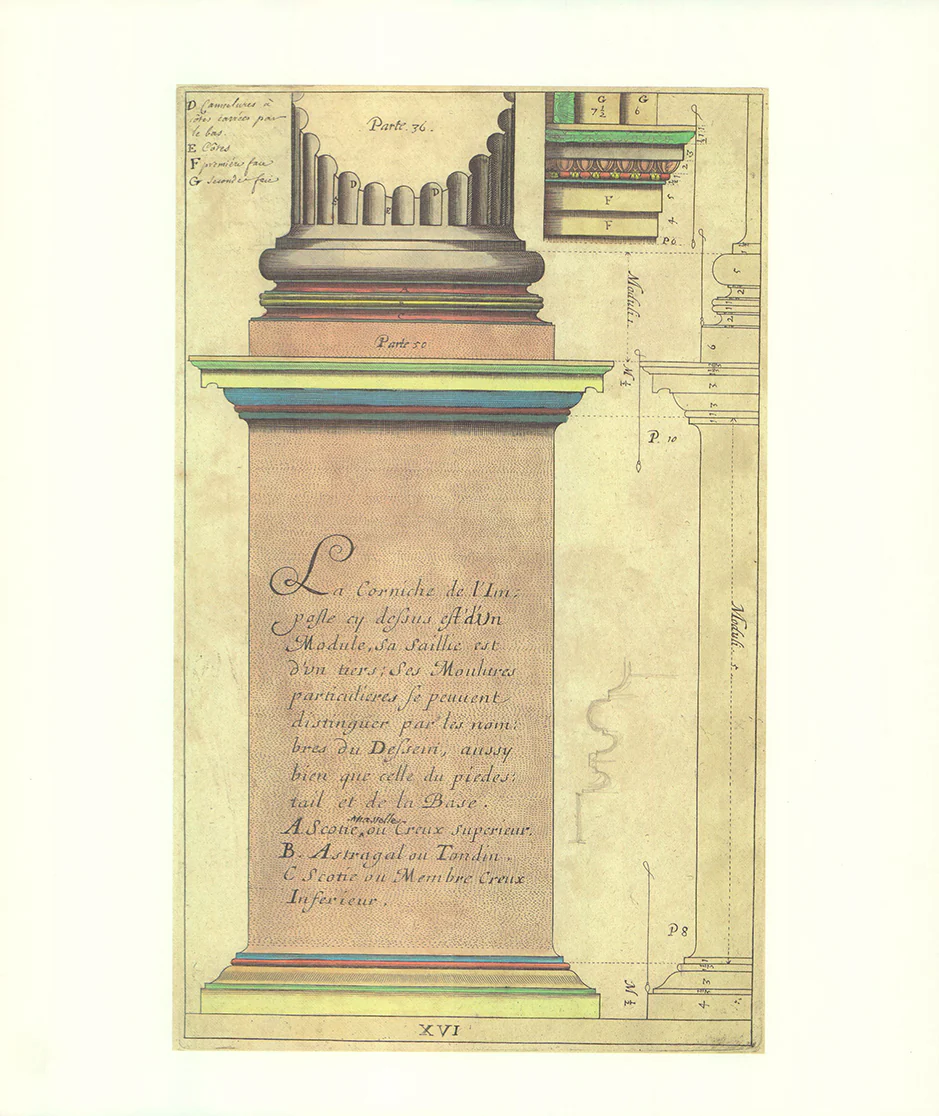 D Cannelures à
côtes carrées par
le bas.
E Côtes
F première face
G seconde face
Parte 36.
D
D
8
8
G
G
7 1/2
6
F
F
5
4
P 6.
A
C
Parte 50
Moduli 1.
M 1/2
P. 10
La Corniche de l'Im:
poste cy dessus est d'un
Module, sa saillie est
d'un tiers; Ses Moulures
particulieres se peuuent
distinguer par les nom:
bres du Dessein, aussy
bien que celle du piedes:
tail et de la Base.
A Scotie, ou Creux superieur.
B. Astragal ou Tondin.
C Scotie ou Membre Creux
Inferieur.
Moduli 5.
P 8
M 1/2
3
4
XVI